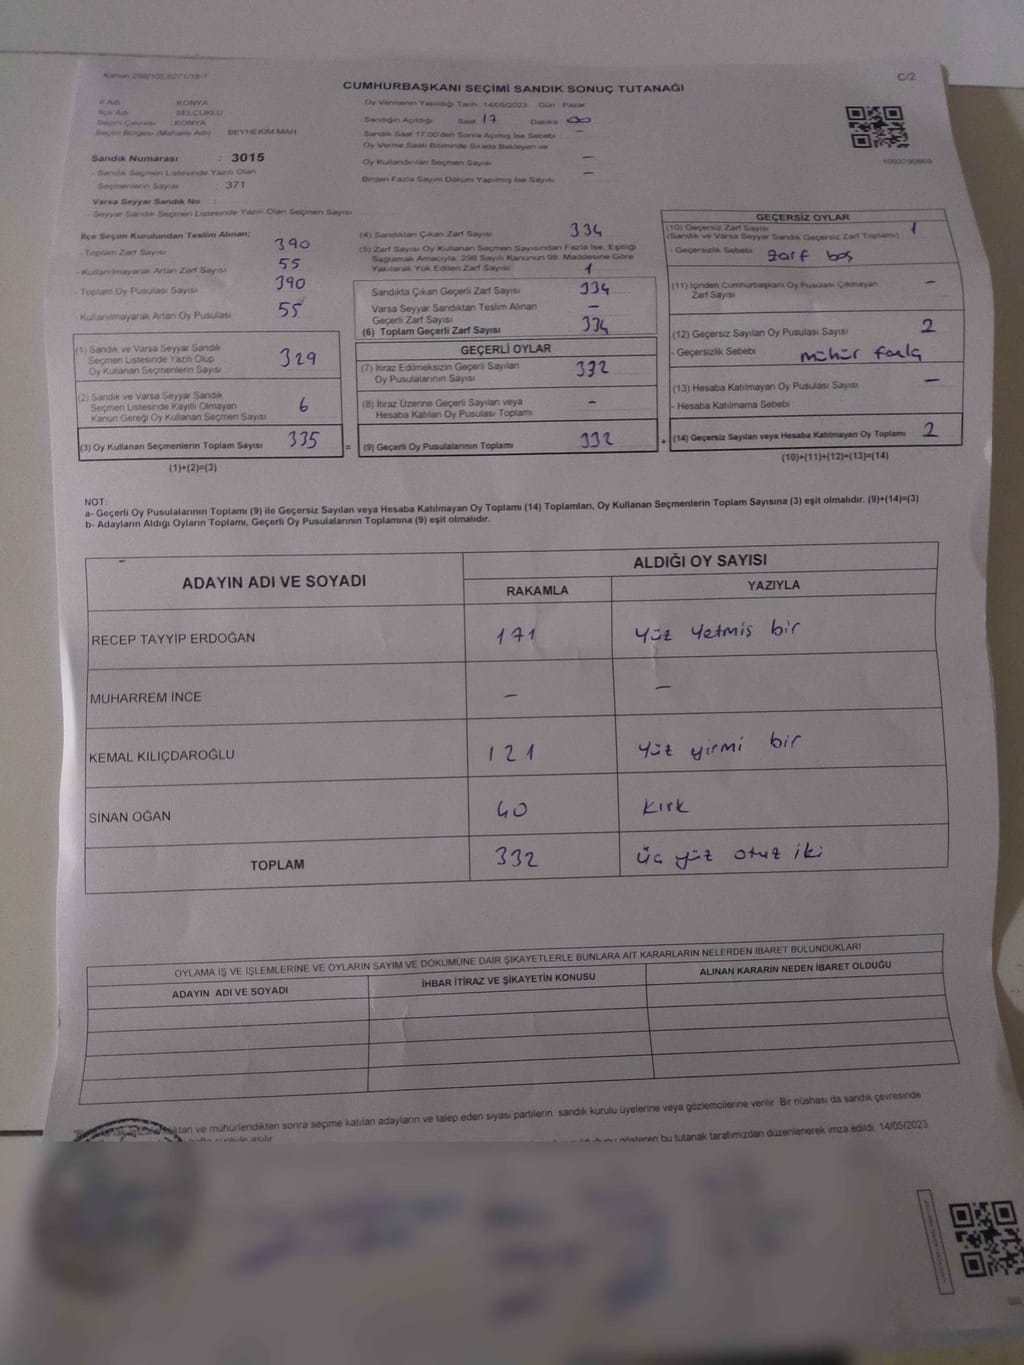 Kanun 298/105,6271/18-1
C/2
CUMHURBAŞKANI SEÇİMİ SANDIK SONUÇ TUTANAĞI
İl Adı : KONYA
İlçe Adı : SELÇUKLU
Seçim Çevresi : KONYA
Seçim Bölgesi (Mahalle Adı) BEYHEKİM MAH.
Sandık Numarası : 3015
- Sandık Seçmen Listesinde Yazılı Olan
Seçmenlerin Sayısı : 371
Varsa Seyyar Sandık No :
- Seyyar Sandık Seçmen Listesinde Yazılı Olan Seçmen Sayısı
Oy Vermenin Yapıldığı Tarih 14/05/2023 Gün Pazar
Sandığın Açıldığı Saat 17 Dakika 00
Sandık Saat 17:00'den Sonra Açılmış İse Sebebi –
Oy Verme Saati Bitiminde Sırada Bekleyen ve
Oy Kullandırılan Seçmen Sayısı –
Birden Fazla Sayım Döküm Yapılmış İse Sayısı –
İlçe Seçim Kurulundan Teslim Alınan;
- Toplam Zarf Sayısı 390
- Kullanılmayarak Artan Zarf Sayısı 55
- Toplam Oy Pusulası Sayısı 390
- Kullanılmayarak Artan Oy Pusulası 55
(1) Sandık ve Varsa Seyyar Sandık
Seçmen Listesinde Yazılı Olup
Oy Kullanan Seçmenlerin Sayısı 329
(2) Sandık ve Varsa Seyyar Sandık
Seçmen Listesinde Kayıtlı Olmayan
Kanun Gereği Oy Kullanan Seçmen Sayısı 6
(3) Oy Kullanan Seçmenlerin Toplam Sayısı 335
(1)+(2)=(3)
(4) Sandıktan Çıkan Zarf Sayısı 334
(5) Zarf Sayısı Oy Kullanan Seçmen Sayısından Fazla İse, Eşitliği
Sağlamak Amacıyla, 298 Sayılı Kanunun 98. Maddesine Göre
Yakılarak Yok Edilen Zarf Sayısı 1
Sandıkta Çıkan Geçerli Zarf Sayısı 334
Varsa Seyyar Sandıktan Teslim Alınan
Geçerli Zarf Sayısı –
(6) Toplam Geçerli Zarf Sayısı 334
GEÇERLİ OYLAR
(7) İtiraz Edilmeksizin Geçerli Sayılan
Oy Pusulalarının Sayısı 332
(8) İtiraz Üzerine Geçerli Sayılan veya
Hesaba Katılan Oy Pusulası Toplamı –
= (9) Geçerli Oy Pusulalarının Toplamı 332
GEÇERSİZ OYLAR
(10) Geçersiz Zarf Sayısı
(Sandık ve Varsa Seyyar Sandık Geçersiz Zarf Toplamı) 1
- Geçersizlik Sebebi zarf boş
(11) İçinden Cumhurbaşkanı Oy Pusulası Çıkmayan
Zarf Sayısı –
(12) Geçersiz Sayılan Oy Pusulası Sayısı 2
- Geçersizlik Sebebi mühür fazla
(13) Hesaba Katılmayan Oy Pusulası Sayısı –
- Hesaba Katılmama Sebebi
+ (14) Geçersiz Sayılan veya Hesaba Katılmayan Oy Toplamı 2
(10)+(11)+(12)+(13)=(14)
NOT:
a- Geçerli Oy Pusulalarının Toplamı (9) ile Geçersiz Sayılan veya Hesaba Katılmayan Oy Toplamı (14) Toplamları, Oy Kullanan Seçmenlerin Toplam Sayısına (3) eşit olmalıdır. (9)+(14)=(3)
b- Adayların Aldığı Oyların Toplamı, Geçerli Oy Pusulalarının Toplamına (9) eşit olmalıdır.
ADAYIN ADI VE SOYADI
ALDIĞI OY SAYISI
RAKAMLA YAZIYLA
RECEP TAYYİP ERDOĞAN 171 Yüz Yetmiş bir
MUHARREM İNCE – –
KEMAL KILIÇDAROĞLU 121 Yüz yirmi bir
SİNAN OĞAN 40 Kırk
TOPLAM 332 üç yüz otuz iki
OYLAMA İŞ VE İŞLEMLERİNE VE OYLARIN SAYIM VE DÖKÜMÜNE DAİR ŞİKAYETLERLE BUNLARA AİT KARARLARIN NELERDEN İBARET BULUNDUKLARI
ADAYIN ADI VE SOYADI İHBAR İTİRAZ VE ŞİKAYETİN KONUSU ALINAN KARARIN NEDEN İBARET OLDUĞU
ve mühürlendikten sonra seçime katılan adayların ve talep eden siyasi partilerin sandık kurulu üyelerine veya gözlemcilerine verilir. Bir nüshası da sandık çevresinde
gösteren bu tutanak tarafımızdan düzenlenerek imza edildi. 14/05/2023